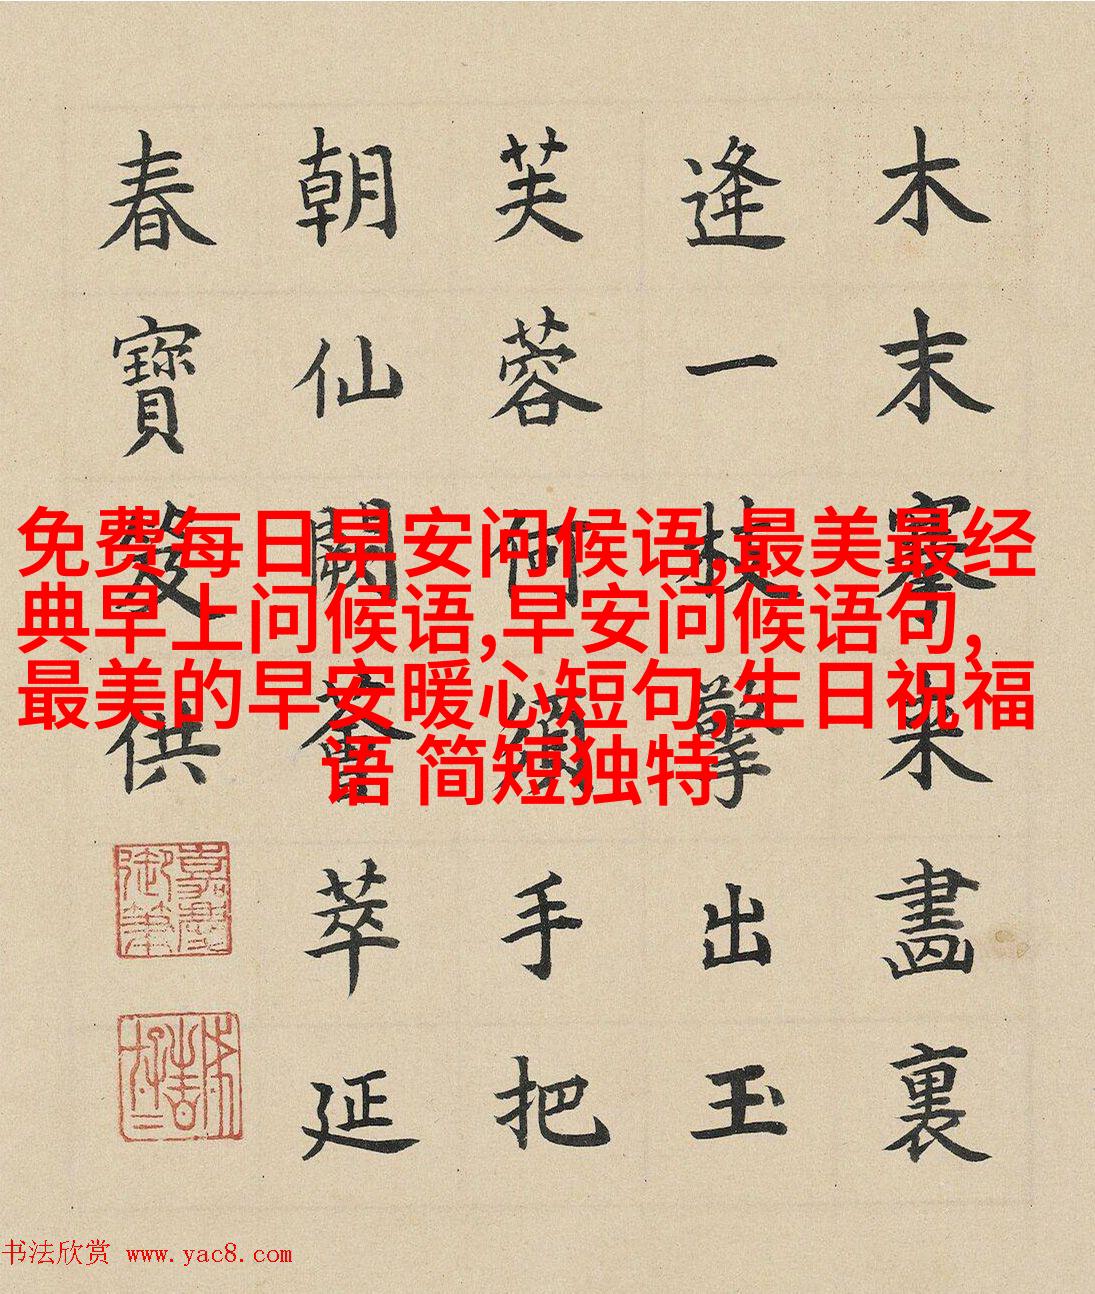 木末搴来畫裏
逢一枝擎出玉
芙蓉何須手把
朝仙闕薈萃延
春寶供
嘉慶御筆
免费每日早安问候语,最美最经
典早上问候语,早安问候语句,
最美的早安暖心短句,生日祝福
语 简短独特
书法欣赏 www.yac8.com